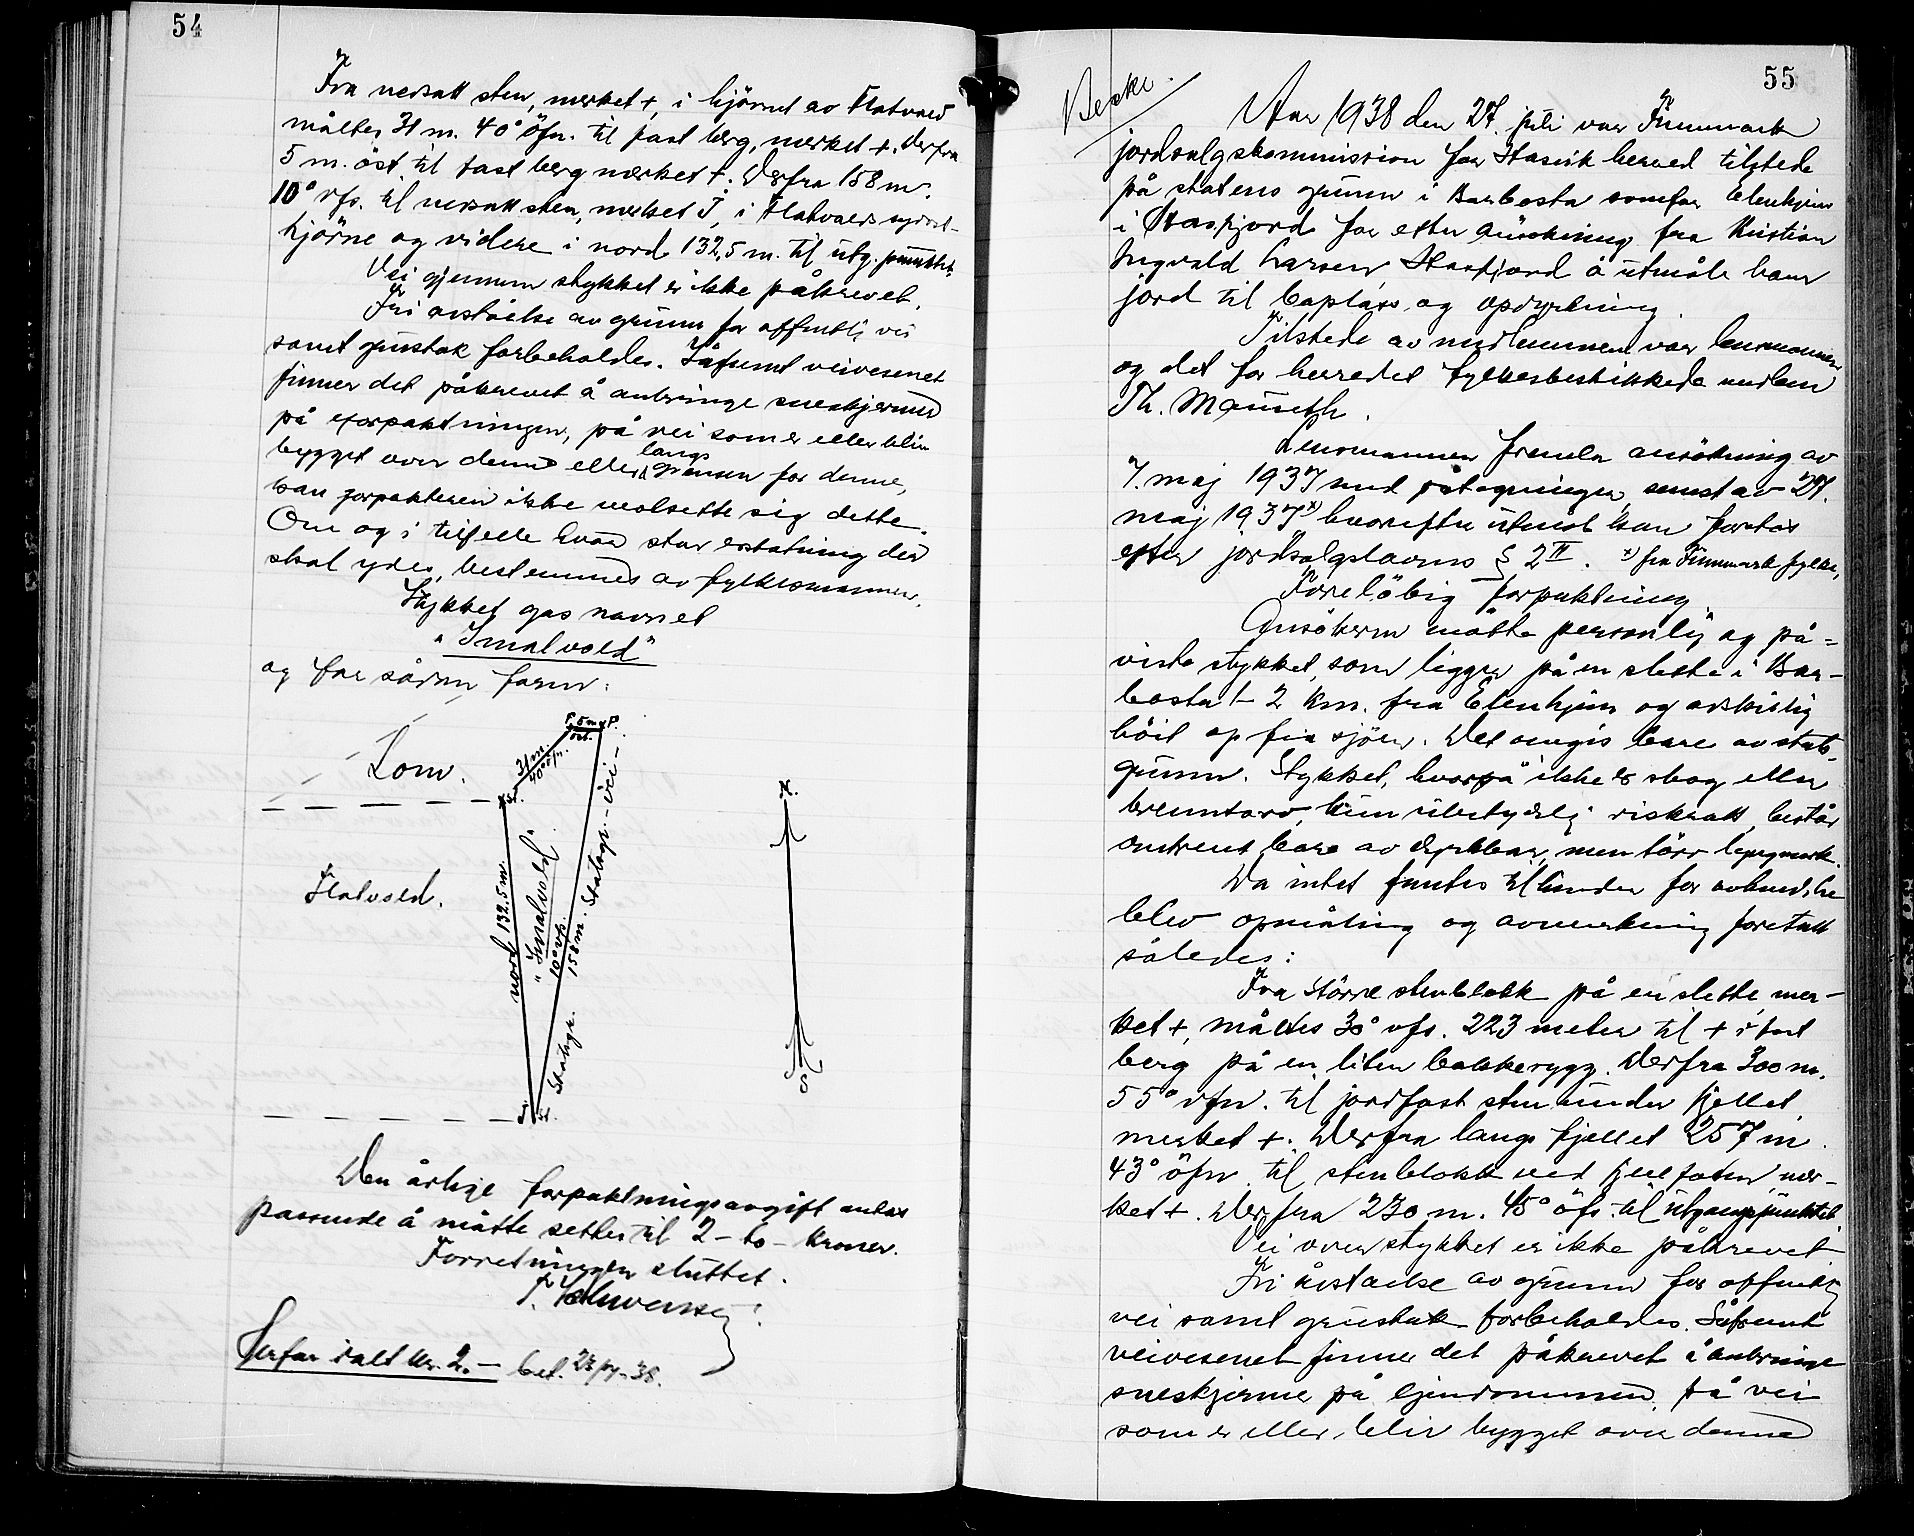 54
Fra nedsatt sten, merket +, i hjørnet av Flatvold
måltes 31 m. 40° öfn. til fast berg, merket +. Derfra
5 m. öst til fast berg merket +. Derfra 158 m.
10° vfs. til nedsatt sten, merket J, i Flatvolds sydöst-
hjörne og videre i nord 132,5 m. til utg. punktet.
Vei gjennem stykket er ikke påkrevet.
Fri avståelse av grunn for offentlig vei
samt grustak forbeholdes. Såfremt veivesenet
finner det påkrevet å anbringe sneskjermer
på forpaktningen, på vei som er eller blir
bygget over denne eller langs grensen for denne,
kan forpakteren ikke motsette sig dette.
Om og i tilfelle hvor stor erstatning der
skal ydes, bestemmes av fylkesmannen.
Stykket gas navnet
"Smalvold"
og har sådan form:
P. 5 m P.
öst.
31 m
40° öfn.
Lom.
Flatvold.
nord 132.5 m.
"Smalvold"
10° vfs.
158 m. Statsgr. - vei -
Statsgr.
J St.
N.
S
Den årlige forpaktningsavgift antas
passende å måtte settes til 2 - to - kroner.
Forretningen sluttet.
Herfor i alt kr. 2.- bet. 23/7-38.
55
Beskr.
Aar 1938 den 27. juli var Finnmark
jordsalgskommission for Hasvik herred tilstede
på statens grunn i Barbosta somfar Elenhjim
i Hasfjord for efter ansökning fra Kristian
Ingvald Larsen Hasfjord å utmåle ham
jord til boplass og opdyrkning.
Tilstede av medlemmene var lensmannen
og det for herredet fylkesbeskikkede medlem
Th. Mauseth.
Lensmannen fremla ansökning av
7. maj 1937 med påtegninger, senest av 27.
maj 1937 x) hvorefter utmål kan foretas
efter jordsalgslovens § 2 II. x) fra Finnmark fylke,
Foreløbig forpaktning.
Ansökeren mötte personlig og på-
viste stykket, som ligger på en slette i Bar-
bosta 1-2 km. fra Elenhjim og adskillig
höit op fra sjöen. Det omgis bare av stats-
grunn. Stykket, hvorpå ikke er skog eller
brenntorv, kun ubetydelig riskratt, består
omtrent bare av dyrkbar, men törr lyngmark.
Da intet fantes til hinder for avhendelse
blev opmåling og avmerkning foretatt
således:
Fra större stenblokk på en slette, mer-
ket +, måltes 30° vfs. 223 meter til + i fast
berg på en liten bakkerygg. Derfra 300 m.
55° vfn. til jordfast sten under fjellet
merket +. Derfra langs fjellet 257 m.
43° öfn. til stenblokk ved fjellfoten, mer-
ket +. Derfra 230 m. 45° öfs. til utgangspunktet.
Vei over stykket er ikke påkrevet.
Fri avståelse av grunn for offentlig
vei samt grustak forbeholdes. Såfremt
veivesenet finner det påkrevet å anbringe
sneskjerme på eiendommen, på vei
som er eller blir bygget over denne